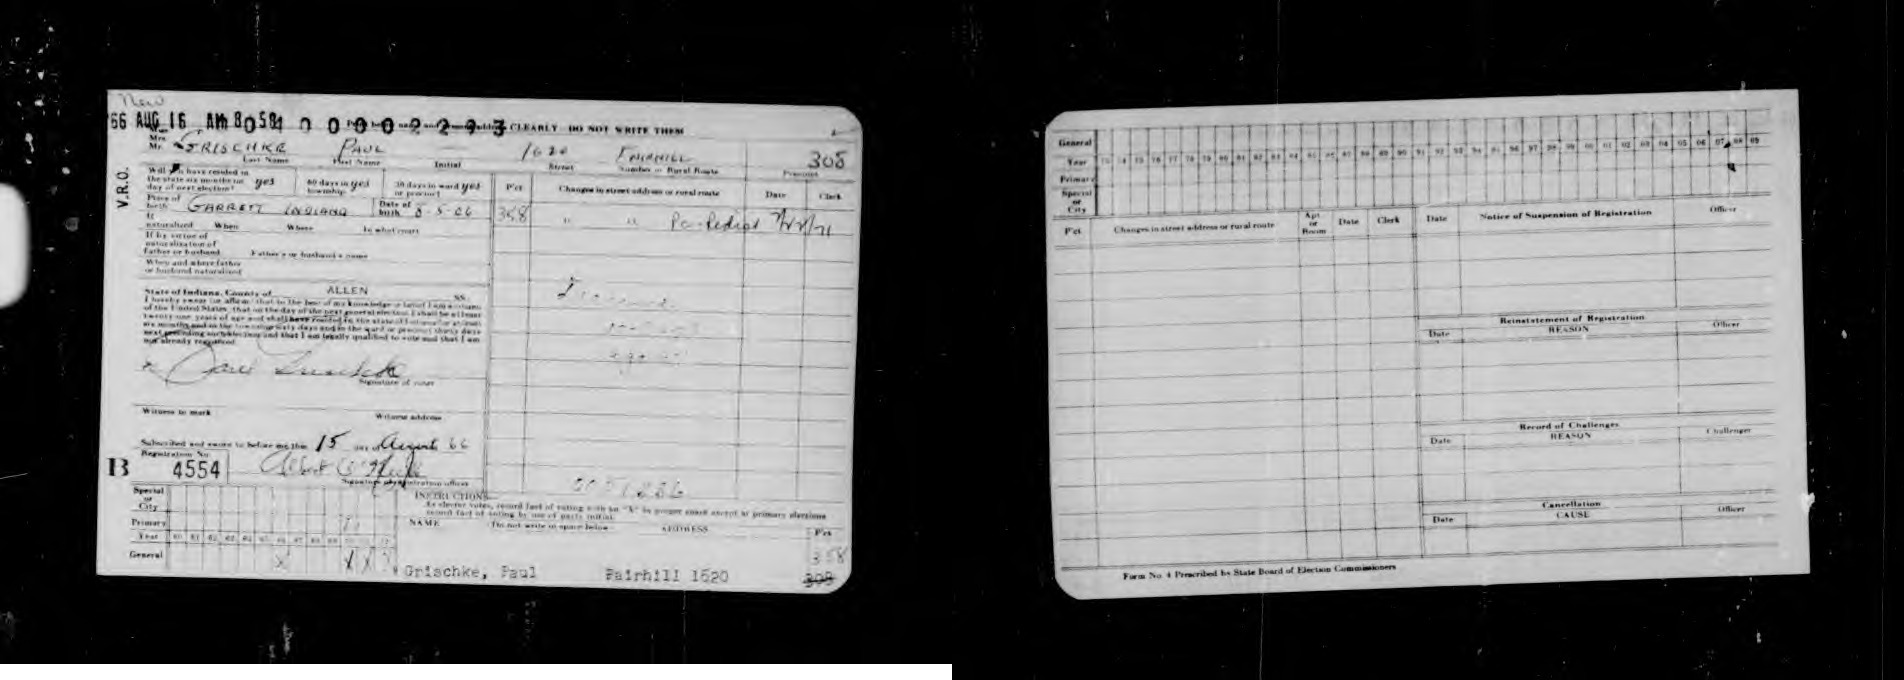 New
66 AUG 16 AM 8 58 00002293 CLEARLY DO NOT WRITE THEM
Mrs.
Mr. GRISCHKE PAUL 1620 FAIRHILL 308
Last Name First Name Initial Street Number or Rural Route Precinct
V.R.O.
Will you have resided in
the state six months on yes 60 days in yes 30 days in ward yes
day of next election? township or precinct
P'ct Changes in street address or rural route Date Clerk
Place of
birth GARRETT INDIANA Date of
birth 8-5-06
358 " "
If
naturalized When Where In what court
If by virtue of
naturalization of
Father or husband Father's or husband's name
When and where father
or husband naturalized
State of Indiana, County of ALLEN SS.
I hereby swear (or affirm) that to the best of my knowledge or belief I am a citizen
of the United States, that on the day of the next general election I shall be at least
twenty-one years of age and shall have resided in the state of Indiana for at least
six months and in the township sixty days and in the ward or precinct thirty days
next preceding such election and that I am legally qualified to vote and that I am
not already registered.
x Paul Grischke
Signature of voter
Witness to mark Witness address
Subscribed and sworn to before me this 15 day of August 66
Registration No.
B 4554
Signature of registration officer
Special
or
City
Primary
Year 60 61 62 63 64 65 66 67 68 69 70 71 72
General X X X
INSTRUCTIONS
As elector votes, record fact of voting with an "X" in proper court except at primary elections
record fact of voting by use of party initial.
NAME (Do not write in space below) ADDRESS P'ct
358
Grischke, Paul Fairhill 1620 308
General
Year 73 74 75 76 77 78 79 80 81 82 83 84 85 86 87 88 89 90 91 92 93 94 95 96 97 98 99 00 01 02 03 04 05 06 07 08 09
Primary
Special
or
City
P'ct Changes in street address or rural route Apt. or Room Date Clerk
Date Notice of Suspension of Registration Officer
Reinstatement of Registration
Date REASON Officer
Record of Challenges
Date REASON Challenger
Cancellation
Date CAUSE Officer
Form No. 4 Prescribed by State Board of Election Commissioners